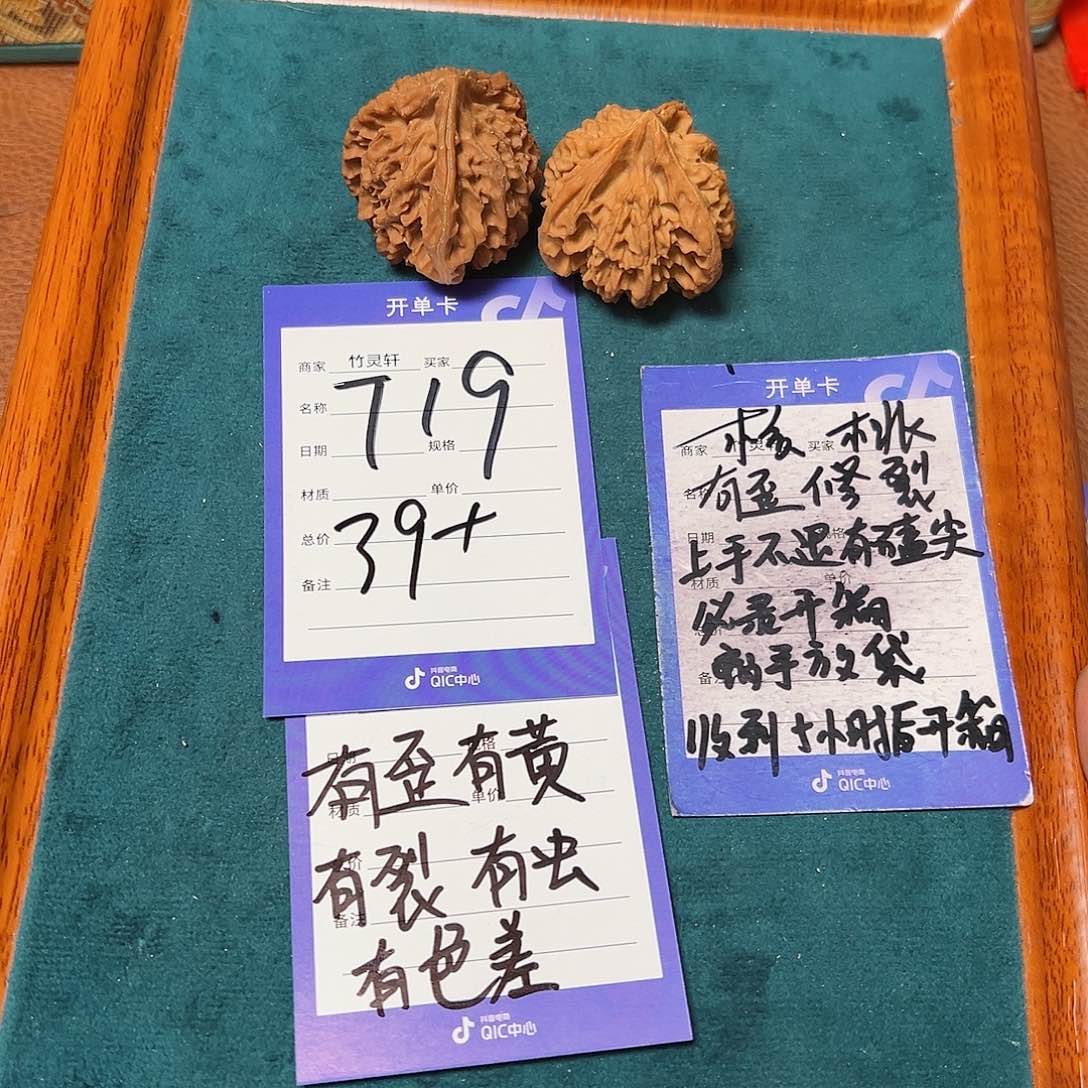 开单卡
商家 竹灵轩 买家
T19
名称
日期 规格
材质 单价
总价 39+
备注
抖音电商
QIC中心
有歪有黄
材质 单价
有裂 有虫
备注
有色差
抖音电商
QIC中心
开单卡
核桃
商家 买家
有歪修裂
名称
上手不退有磕尖
日期 规格
材质 单价
必录开箱
勿手放袋
备注
收到十小时后开箱
抖音电商
QIC中心